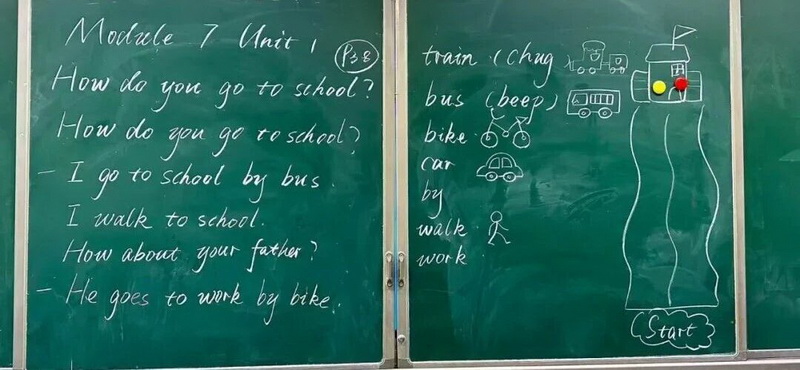 Module 7 Unit 1
P38
How do you go to school?
How do you go to school?
- I go to school by bus.
I walk to school.
How about your father?
- He goes to work by bike.
train (chug
bus (beep)
bike
car
by
walk
work
Start